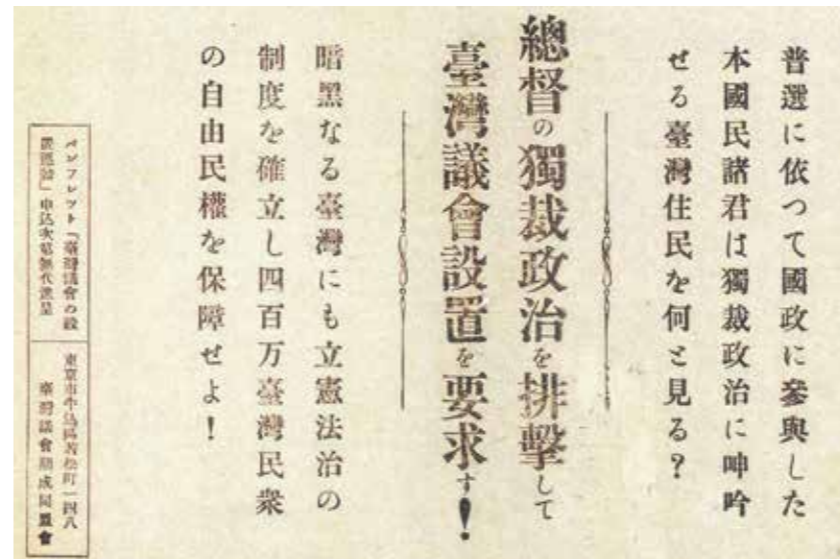 普選に依つて國政に參與した
本國民諸君は獨裁政治に呻吟
せる臺灣住民を何と見る?
總督の獨裁政治を排擊して
臺灣議會設置を要求す!
暗黑なる臺灣にも立憲法治の
制度を確立し四百万臺灣民衆
の自由民權を保障せよ!
パンフレツト「臺灣議會の設
置運動」申込次第無代進呈
東京市牛込區若松町一四八
臺灣議會期成同盟會